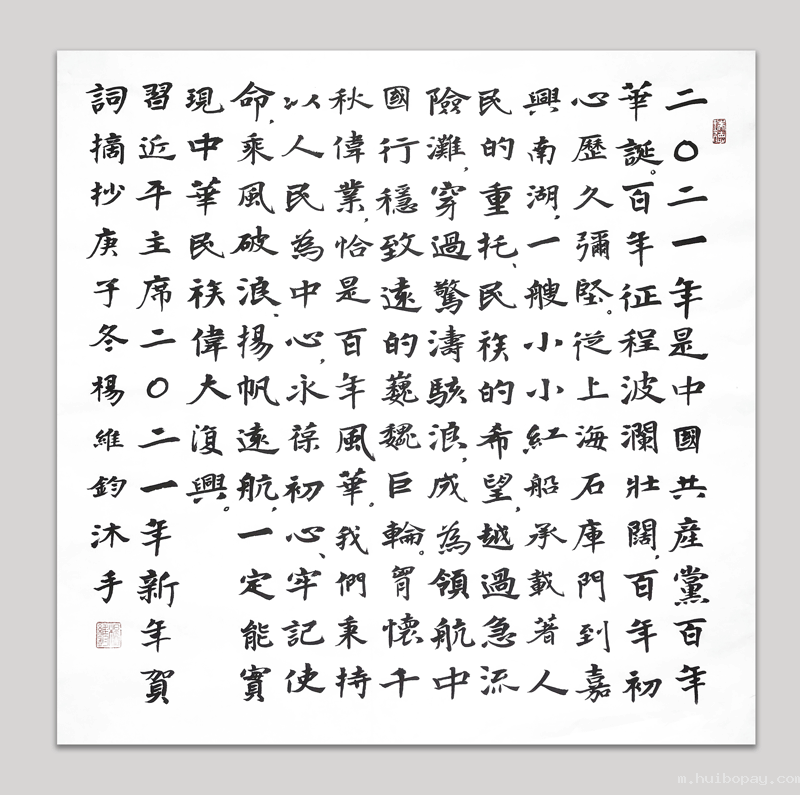 二〇二一年是中國共產黨百年
華誕。百年征程波瀾壯闊，百年初
心歷久彌堅。從上海石庫門到嘉
興南湖，一艘小小紅船承載著人
民的重托、民族的希望，越過急流
險灘，穿過驚濤駭浪，成為領航中
國行穩致遠的巍巍巨輪。胸懷千
秋偉業，恰是百年風華。我們秉持
以人民為中心，永葆初心、牢記使
命，乘風破浪、揚帆遠航，一定能實
現中華民族偉大復興。
習近平主席二〇二一年新年賀
詞摘抄庚子冬楊維鈞沐手
m.huibopay.com